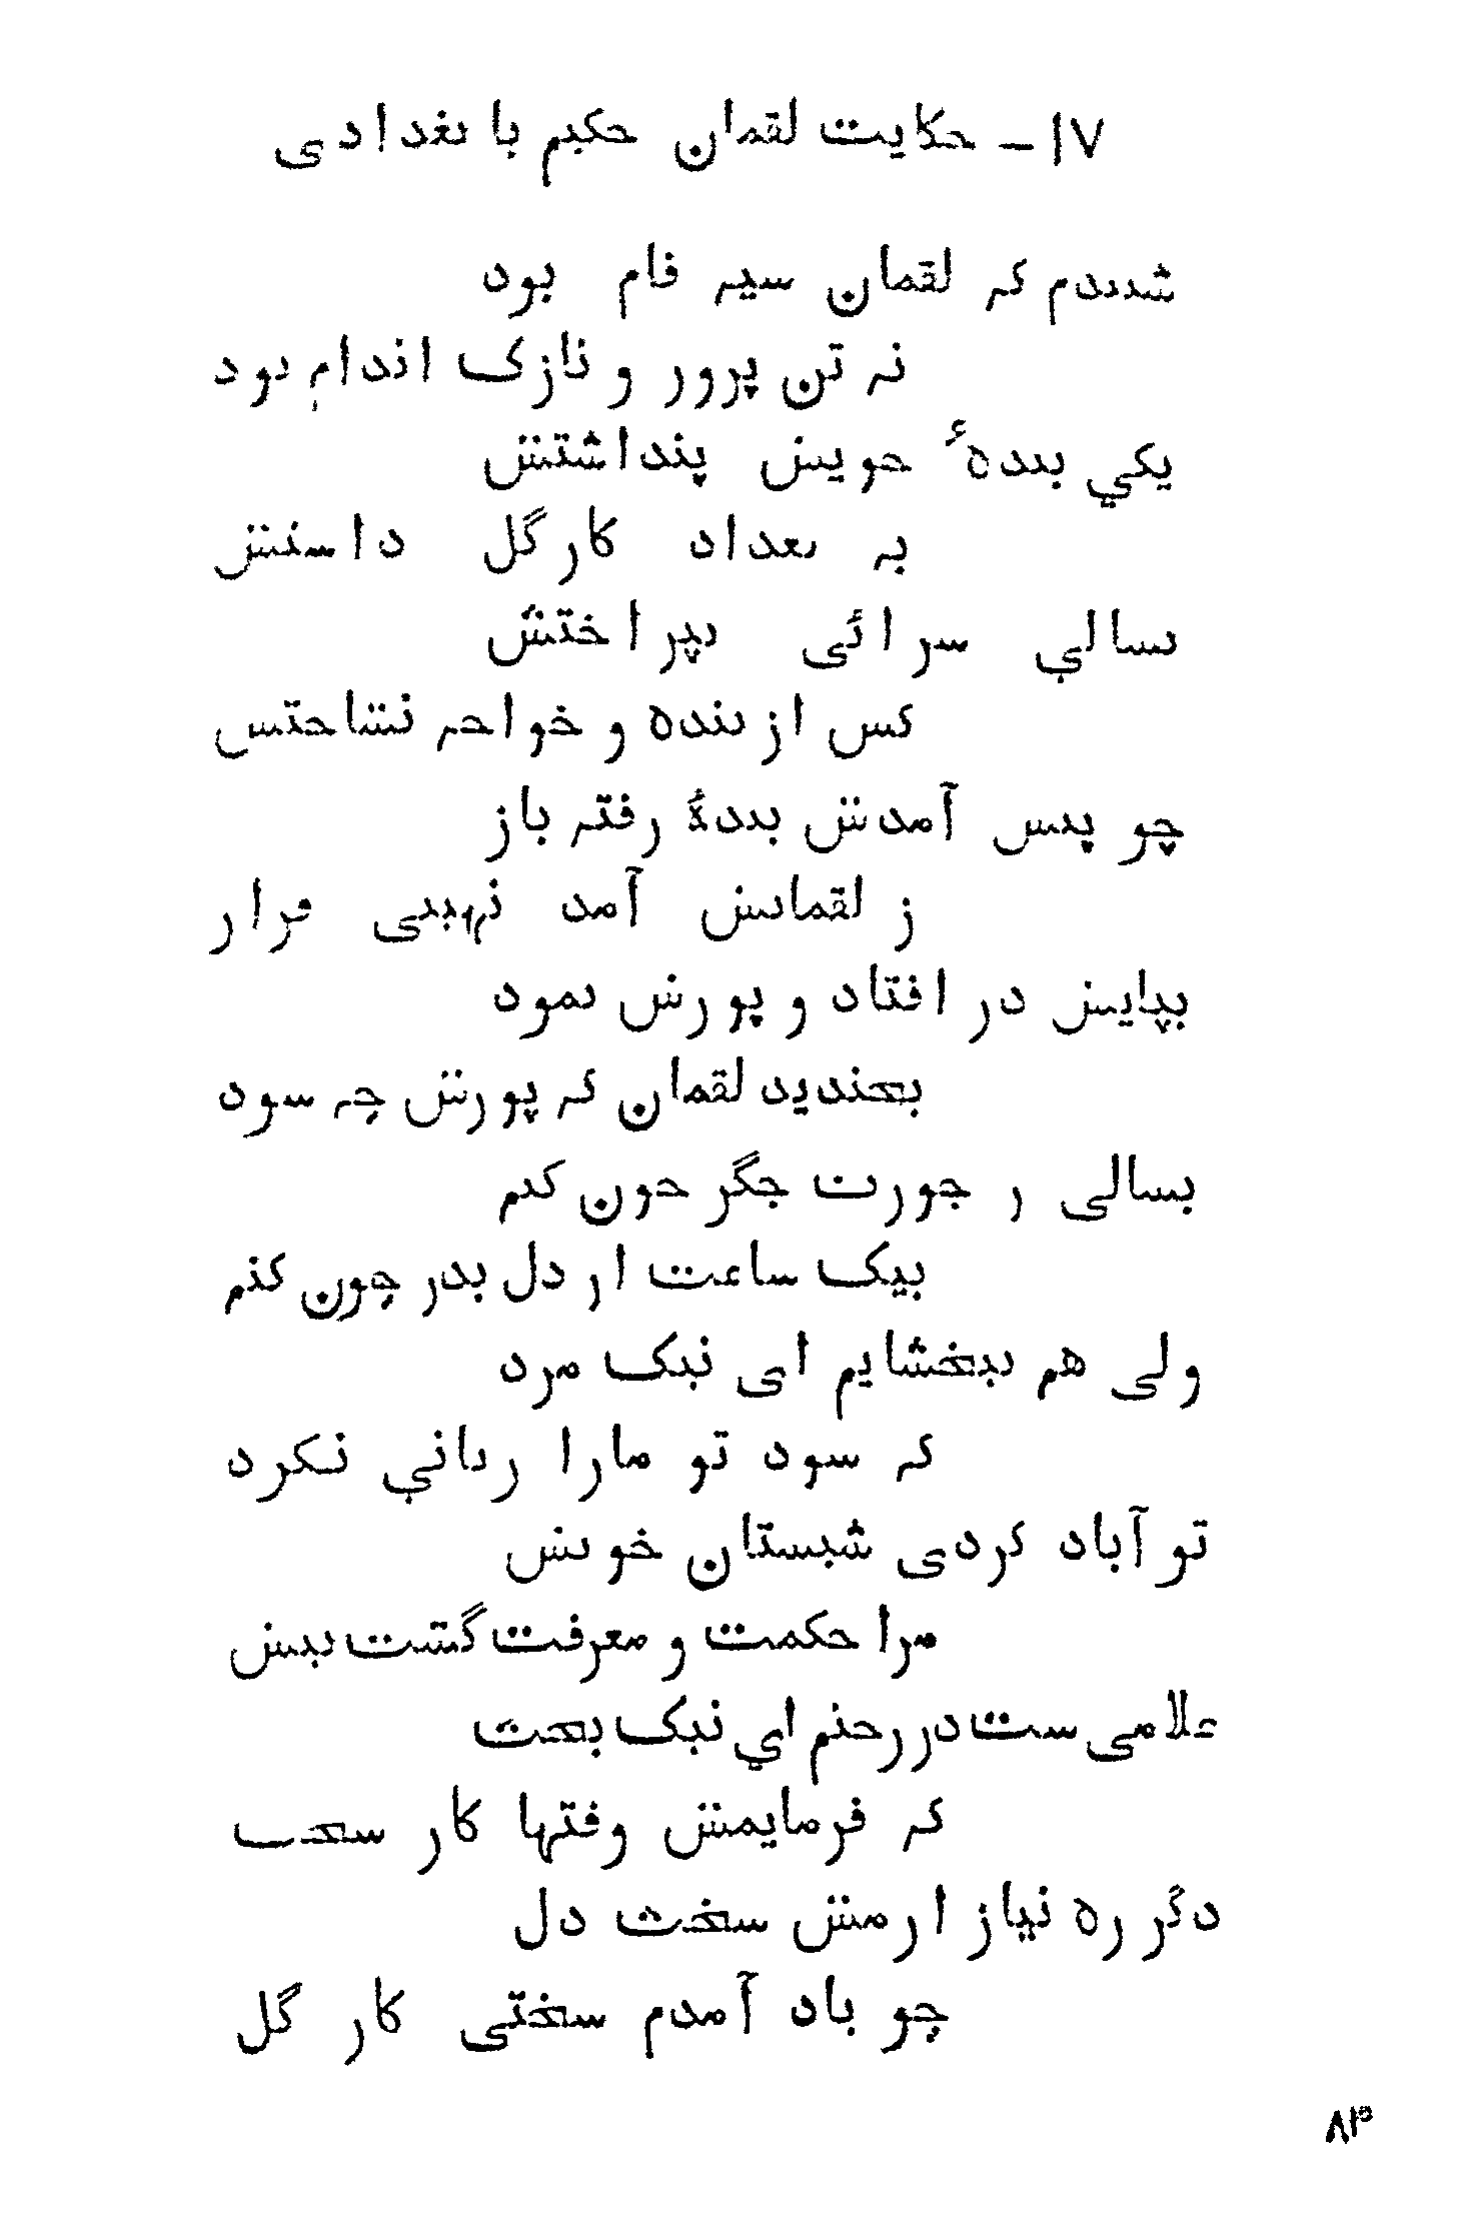 ۱۷ – حکایت لقمان حکیم با بغدادی
شنیدم که لقمان سیه فام بود
نه تن پرور و نازک اندام بود
یکي بندهٔ خویش پنداشتش
به بغداد کار گل داشتش
بسالي سرائی بپراختش
کس از بنده و خواجه نشناختس
چو پیش آمدش بندهٔ رفته باز
ز لقمانش آمد نهیبی فراز
بپایش در افتاد و پوزش نمود
بخندید لقمان که پوزش چه سود
بسالی ز جورت جگر خون کنم
بیک ساعت از دل بدر چون کنم
ولی هم ببخشایم ای نیک مرد
که سود تو مارا زیاني نکرد
تو آباد کردی شبستان خویش
مرا حکمت و معرفت گشت بیش
غلامی ست در رختم اي نیک بخت
که فرمایمش وقتها کار سخت
دگر ره نیازارمش سخت دل
چو یاد آمدم سختی کار گل
۸۳